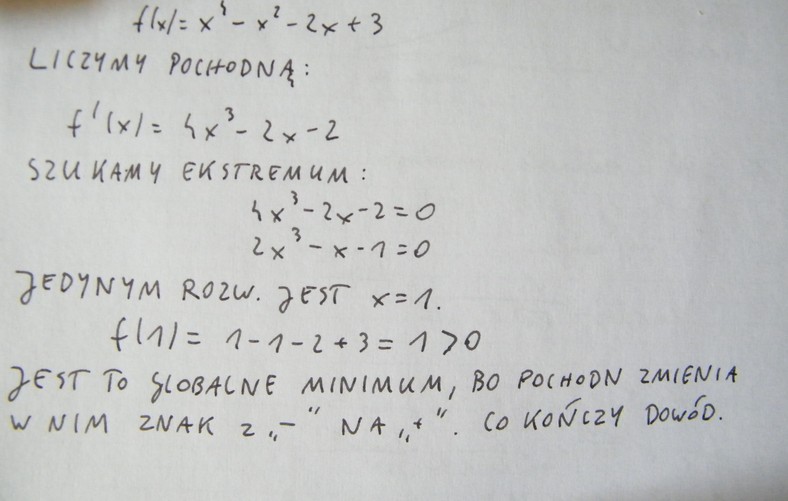 f(x)= x⁴ - x² - 2x + 3
LICZYMY POCHODNĄ:
f'(x)= 4x³ - 2x - 2
SZUKAMY EKSTREMUM:
4x³ - 2x - 2 = 0
2x³ - x - 1 = 0
JEDYNYM ROZW. JEST x=1.
f(1)= 1 - 1 - 2 + 3 = 1 > 0
JEST TO GLOBALNE MINIMUM, BO POCHODN ZMIENIA
W NIM ZNAK Z „-" NA „+". CO KOŃCZY DOWÓD.